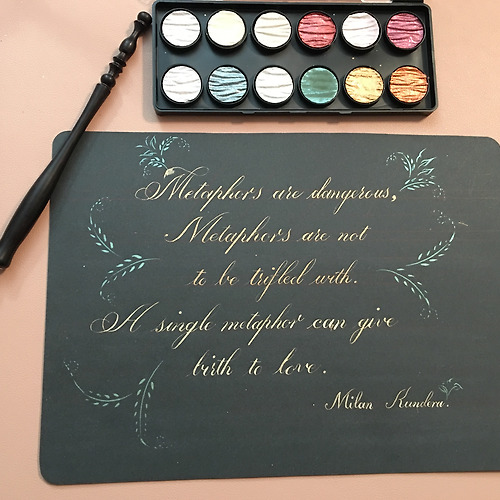 Metaphors are dangerous,
Metaphors are not
to be trifled with.
A single metaphor can give
birth to love.
Milan Kundera.